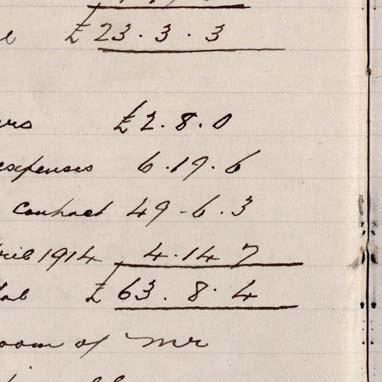 £23.3.3
ers £2.8.0
expenses 6.19.6
contract 49-6.3
ril 1914 4.14 7
tal £63.8.4
oom of Mr